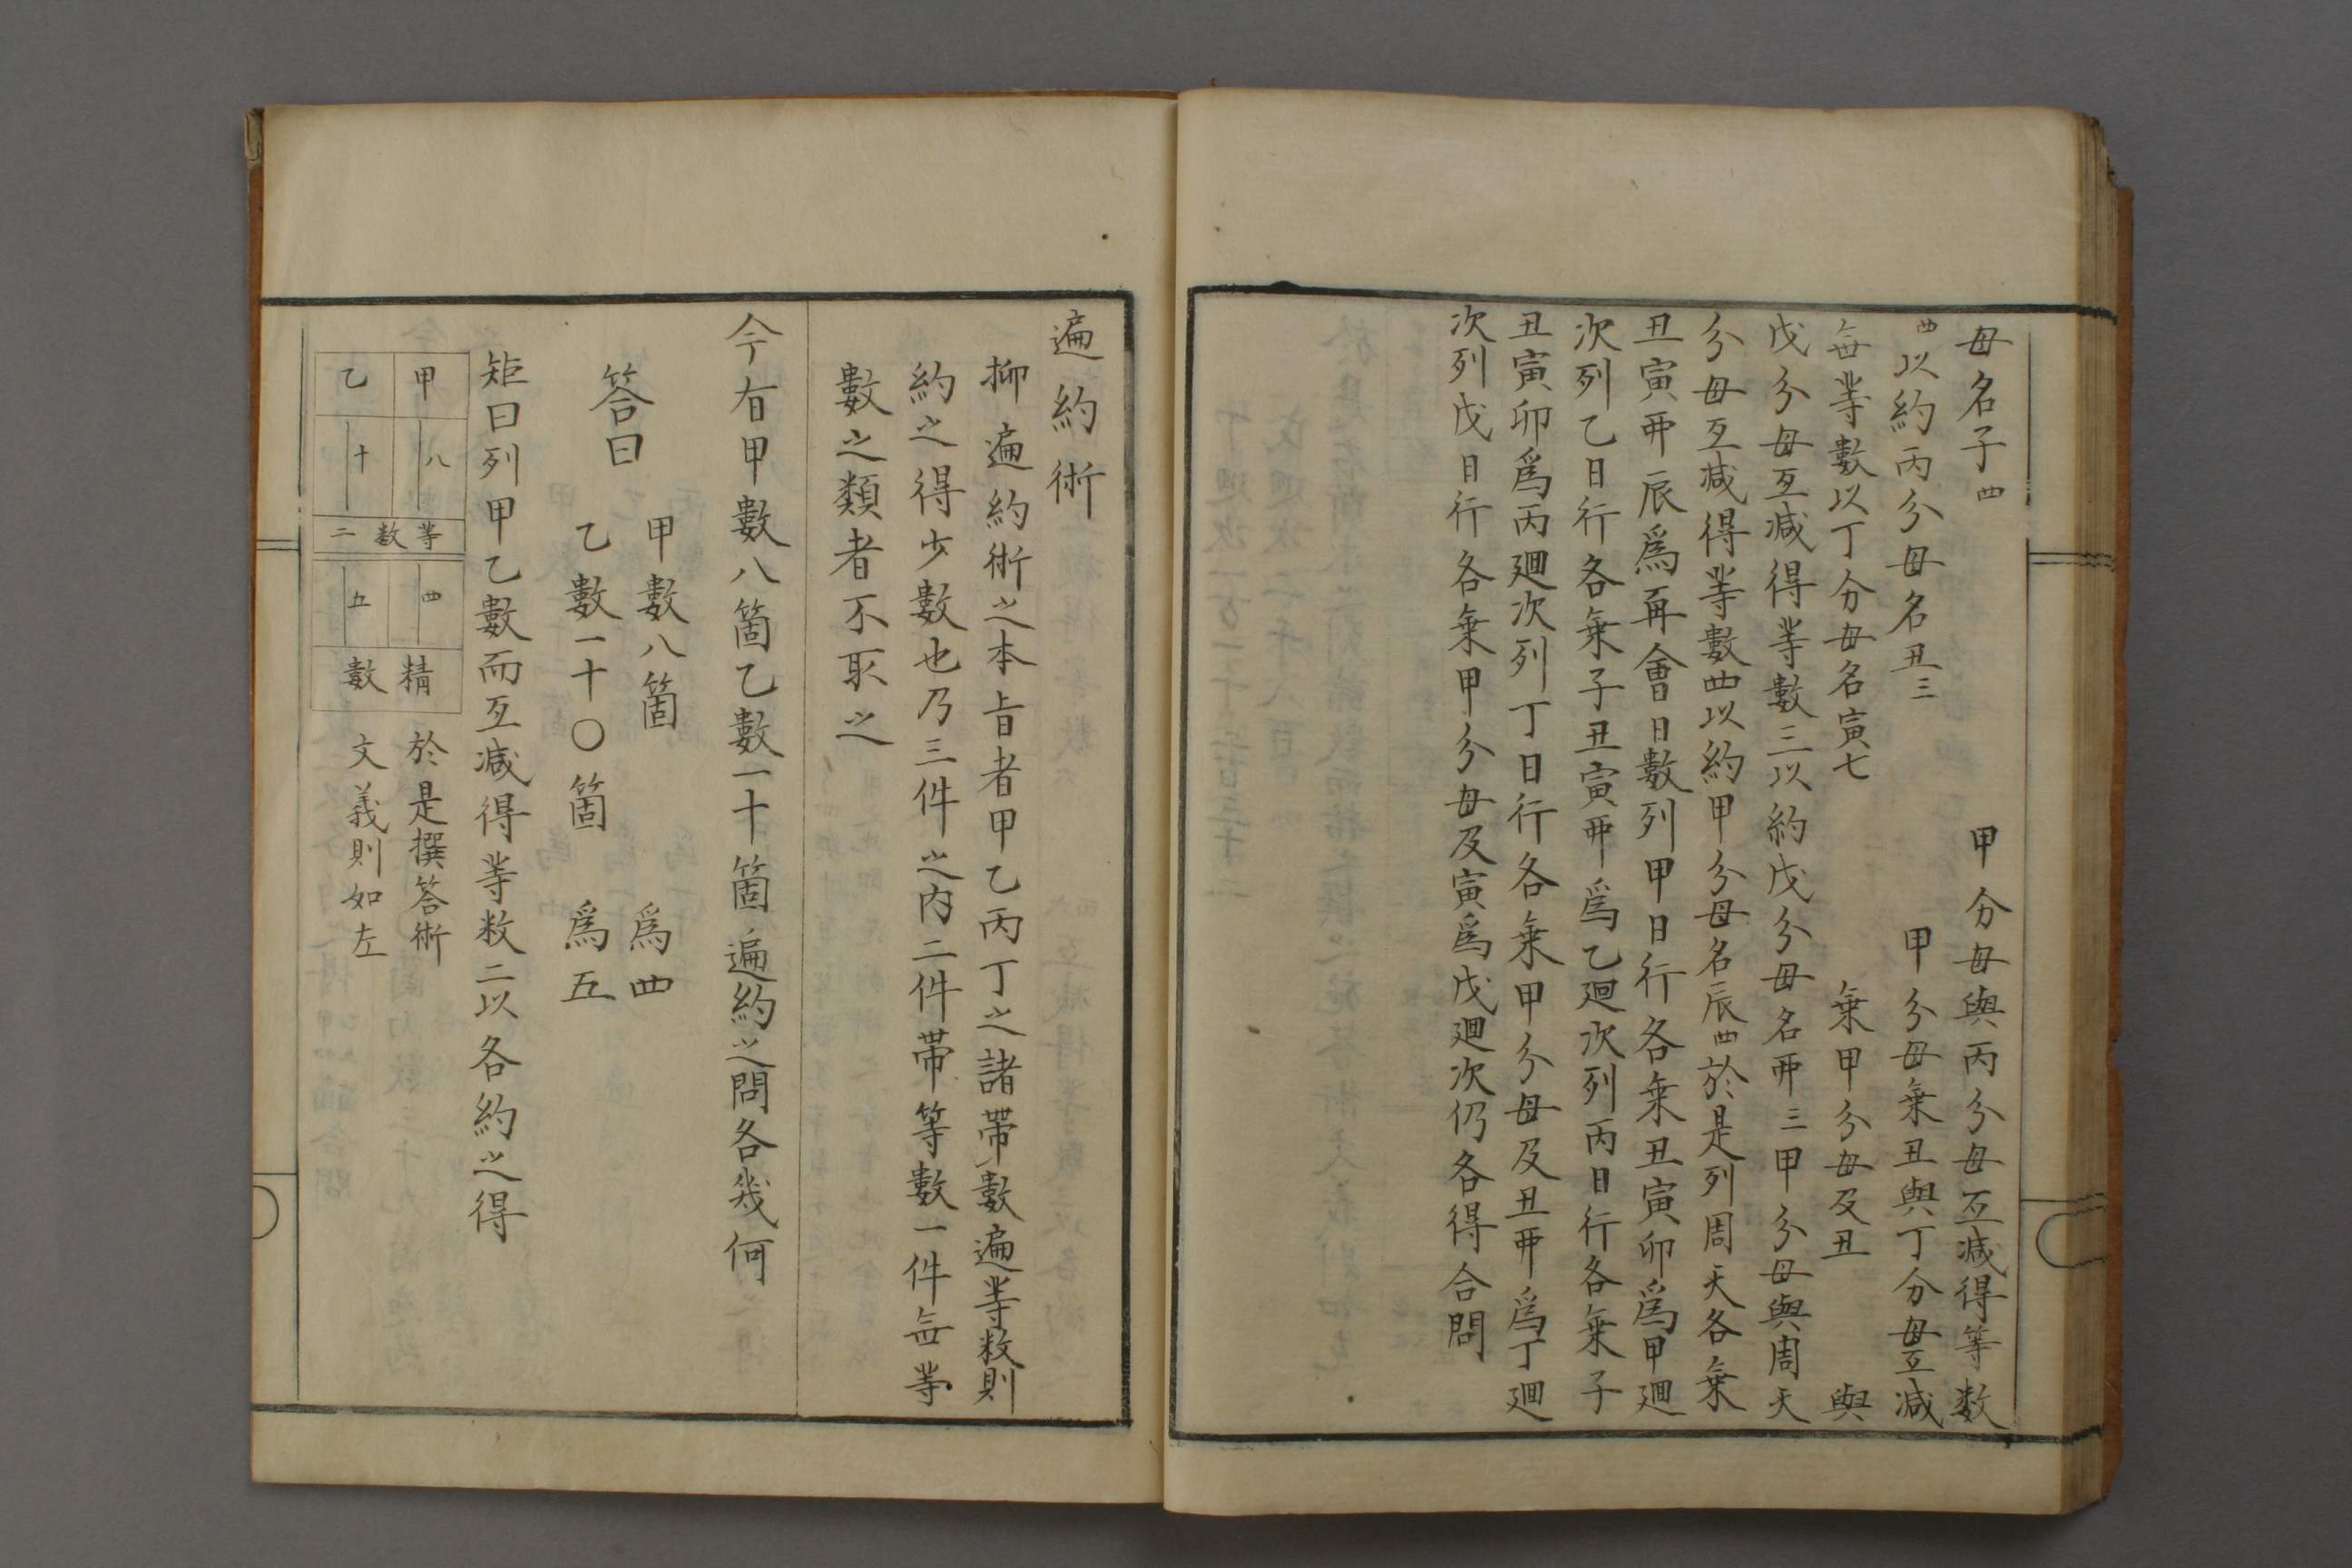 母名子四 甲分母與丙分母互減得等數
四以約丙分母名丑三 甲分母乗丑與丁分母互減
每等數以丁分母名寅七 乗甲分母及丑 與
戊分母互減得等數三以約戊分母名丣三甲分母與周天
分母互減得等數四以約甲分母名辰四於是列周天各乗
丑寅丣辰爲再會日數列甲日行各乗丑寅卯爲甲廻
次列乙日行各乗子丑寅丣爲乙廻次列丙日行各乗子
丑寅卯爲丙廻次列丁日行各乗甲分母及丑丣爲丁廻
次列戊日行各乗甲分母及寅爲戊廻次仍各得合問
遍約術
抑遍約術之本旨者甲乙丙丁之諸帶數遍等数則
約之得少數也乃三件之内二件帶等數一件無等
數之類者不取之
今有甲數八箇乙數一十箇遍約之問各幾何
答曰
甲數八箇 爲四
乙數一十〇箇 爲五
矩曰列甲乙數而互減得等数二以各約之得
甲 八
乙 十
等数二
四
五
精數
於是撰答術
文義則如左